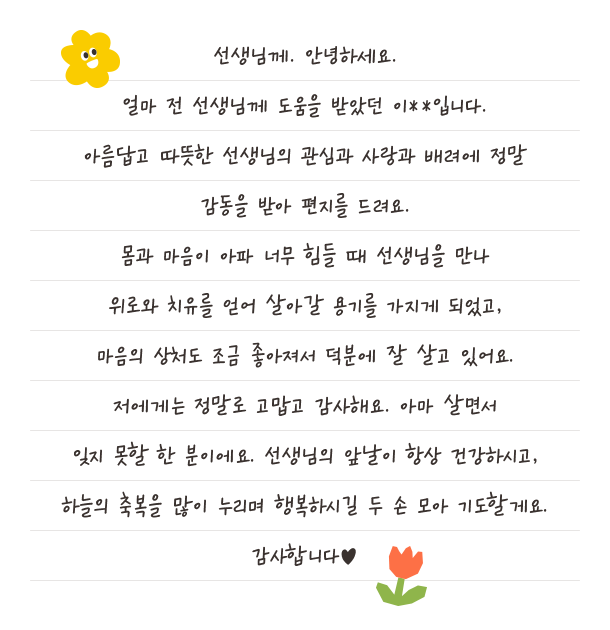 선생님께. 안녕하세요.
얼마 전 선생님께 도움을 받았던 이**입니다.
아름답고 따뜻한 선생님의 관심과 사랑과 배려에 정말
감동을 받아 편지를 드려요.
몸과 마음이 아파 너무 힘들 때 선생님을 만나
위로와 치유를 얻어 살아갈 용기를 가지게 되었고,
마음의 상처도 조금 좋아져서 덕분에 잘 살고 있어요.
저에게는 정말로 고맙고 감사해요. 아마 살면서
잊지 못할 한 분이에요. 선생님의 앞날이 항상 건강하시고,
하늘의 축복을 많이 누리며 행복하시길 두 손 모아 기도할게요.
감사합니다♥